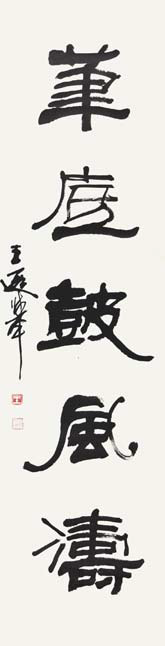 筆底鼓風濤
王遐举